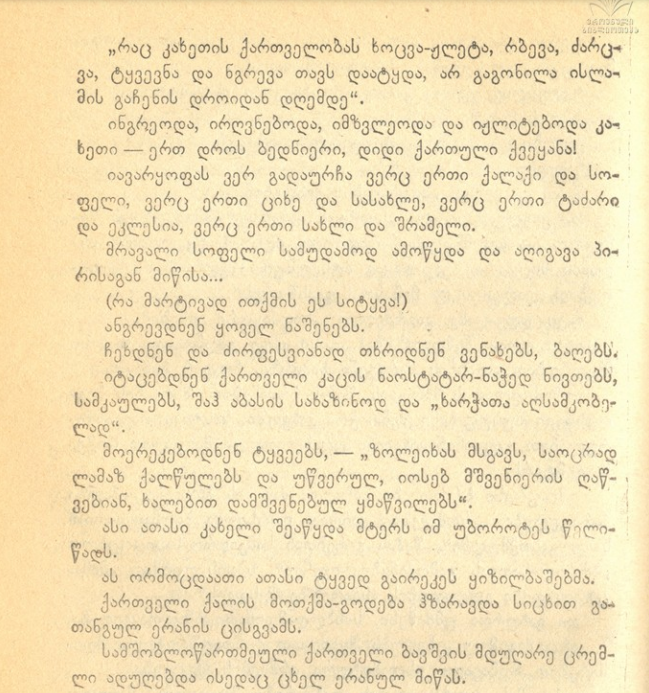 ეროვნული
ბიბლიოთეკა
„რაც კახეთის ქართველობას ხოცვა-ჟლეტა, რბევა, ძარც-
ვა, ტყვევნა და ნგრევა თავს დაატყდა, არ გაგონილა ისლა-
მის გაჩენის დროიდან დღემდე“.
ინგრეოდა, ირღვნებოდა, იმზვლეოდა და იჟლიტებოდა კა-
ხეთი — ერთ დროს ბედნიერი, დიდი ქართული ქვეყანა!
იავარყოფას ვერ გადაურჩა ვერც ერთი ქალაქი და სო-
ფელი, ვერც ერთი ციხე და სასახლე, ვერც ერთი ტაძარი
და ეკლესია, ვერც ერთი სახლი და შრამელი.
მრავალი სოფელი სამუდამოდ ამოწყდა და აღიგავა პი-
რისაგან მიწისა...
(რა მარტივად ითქმის ეს სიტყვა!)
ანგრევდნენ ყოველ ნაშენებს.
ჩეხდნენ და ძირფესვიანად თხრიდნენ ვენახებს, ბაღებს.
იტაცებდნენ ქართველი კაცის ნაოსტატარ-ნაჭედ ნივთებს,
სამკაულებს, შაჰ აბასის სახაზინოდ და „ხარჭათა აღსამკობე-
ლად“.
მოერეკებოდნენ ტყვეებს, — „ზოლეიხას მსგავს, საოცრად
ლამაზ ქალწულებს და უწვერულ, იოსებ მშვენიერის დაწ-
ვებიან, ხალებით დამშვენებულ ყმაწვილებს“.
ასი ათასი კახელი შეაწყდა მტერს იმ უბოროტეს წელი-
წადს.
ას ორმოცდაათი ათასი ტყვედ გაირეკეს ყიზილბაშებმა.
ქართველი ქალის მოთქმა-გოდება ჰზარავდა სიცხით გა-
თანგულ ერანის ცისგვამს.
სამშობლოწართმეული ქართველი ბავშვის მდუღარე ცრემ-
ლი ადუღებდა ისედაც ცხელ ერანულ მიწას.